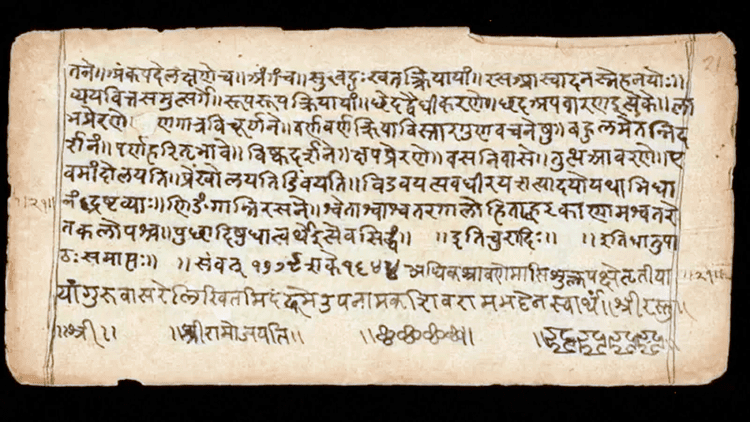 तने॥ अंकपदेलक्षणेच॥ अंगच॥ सुखदुःखतत्क्रियायां॥ रसआस्वादनस्नेहनयोः॥
व्ययवित्तसमुत्सर्गे॥ रूपरूपक्रियायां॥ छेदद्वैधीकरणे॥ छदअपवारणइत्येके॥ ला
भप्रेरणे॥ गात्रविचूर्णने॥ वर्णवर्णक्रियाविस्तारगुणवचनेषु॥ बहुलमेतन्निद
र्शनं॥ पर्णहरितभावे॥ विष्कदर्शने॥ क्षपप्रेरणे॥ वसनिवासे॥ तुत्थआवरणे॥ ए
वमांदोलयति॥ प्रेंखोलयति यथाभिधा
नं द्रष्टव्याः॥ णिङंगान्निरसने॥ श्वेताश्वाश्वतरगालोहिताह्वरकाणामश्वतरे
तकलोपश्च॥ पुच्छादिषुधात्वर्थइत्येवसिद्धं॥ ॥इतिचुरादिः॥ ॥इतिधातुपा
ठःसमाप्तः॥ ॥संवत् १७७९ शके १६४४ अधिकश्रावणेमासिशुक्लपक्षेतृतीया
यांगुरूवासरेलिखितमिदं उपनामकशिवरामभट्टेनस्वार्थं॥ श्रीरस्तु॥
॥श्री॥ ॥श्रीरामोजयति॥
॥२१॥
॥२१॥
21